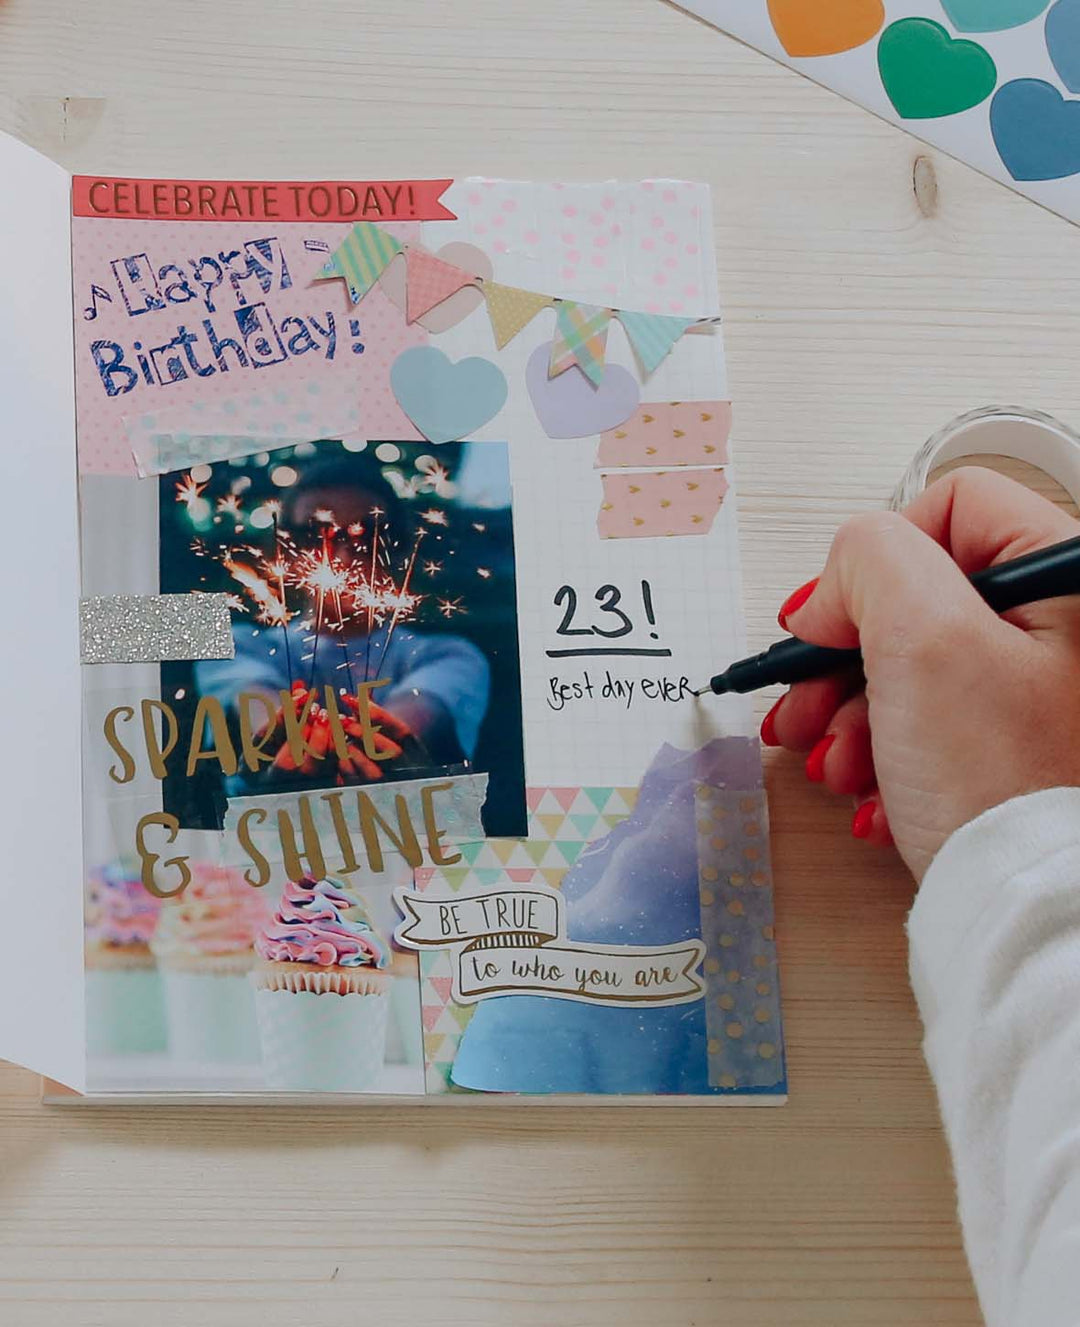 CELEBRATE TODAY!
Happy
Birthday!
23!
Best day ever
SPARKLE
& SHINE
BE TRUE
to who you are